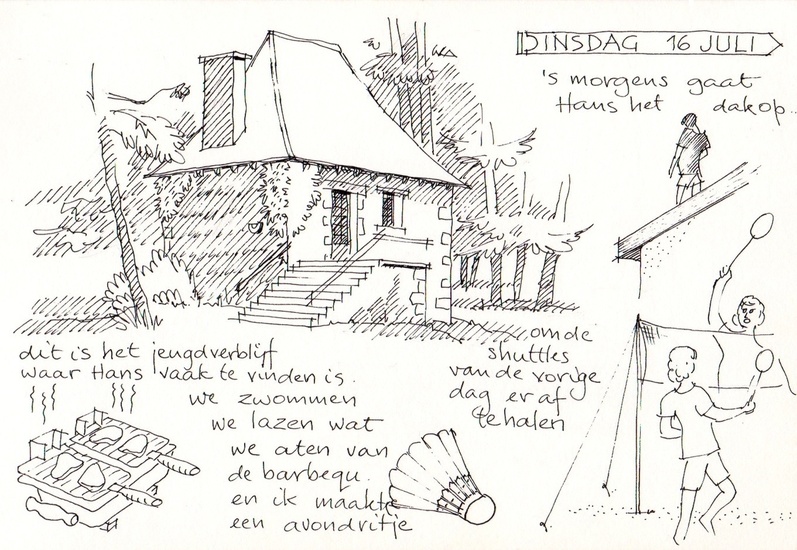 DINSDAG 16 JULI
's morgens gaat
Hans het dak op..
...om de
shuttles
van de vorige
dag er af
te halen
dit is het jeugdverblijf
waar Hans vaak te vinden is.
we zwommen
we lazen wat
we aten van
de barbequ.
en ik maakte
een avondritje